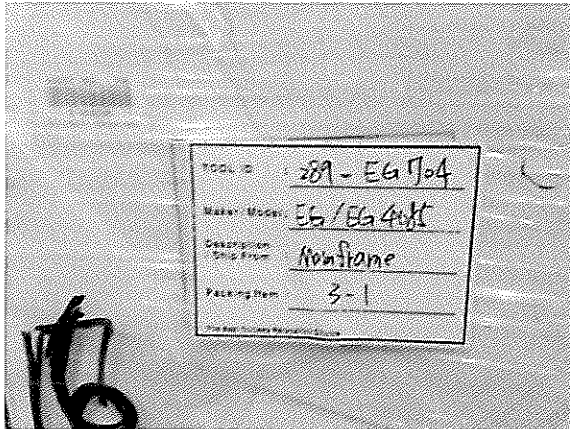 TOOL ID : 289 - EG704
Maker Model : EG / EG4085
Description
Ship From Mainframe
Packing Item 3-1
16